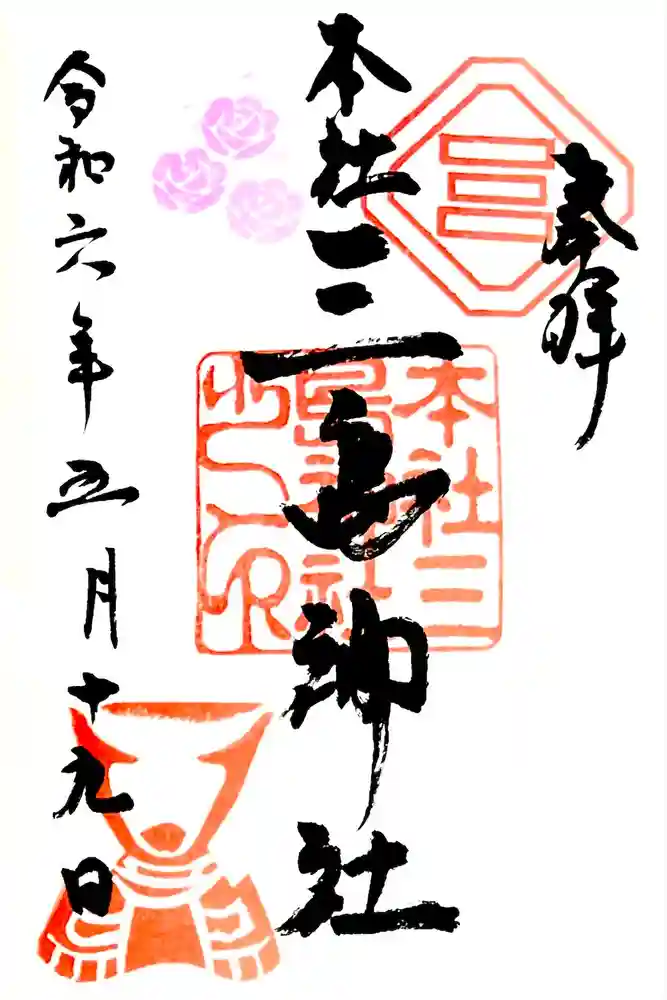 奉拝
本社三島神社
本社三
島神社
之印
令和六年五月十九日